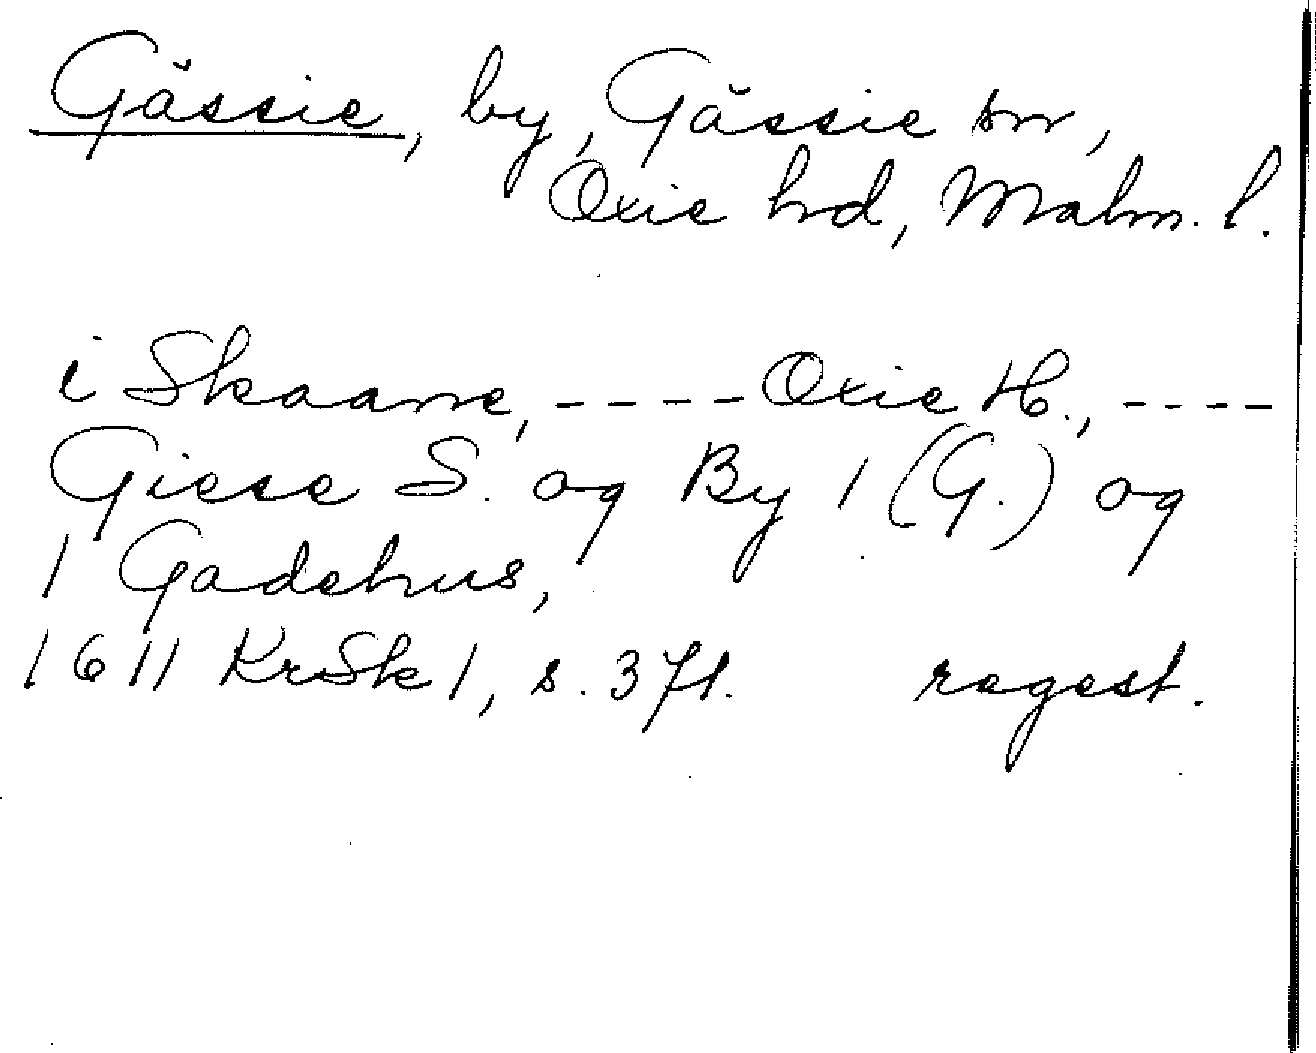 Gässie, by, Gässie sn,
Oxie hd, Malm. l.
i Skaane, ---- Oxie H., ----
Giese S. og By 1 (G.) og
1 Gadehus,
1611 KrSk 1, s. 371. regest.